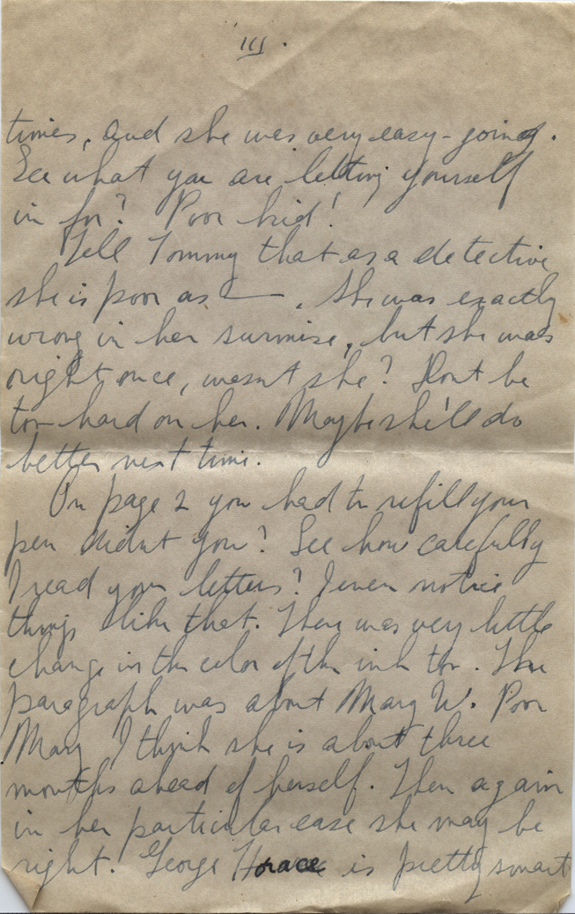 III.
times, and she was very easy-going.
See what you are letting yourself
in for? Poor kid!
Tell Tommy that as a detective
she is poor as —. She was exactly
wrong in her surmise, but she was
right once, wasnt she? Dont be
too hard on her. Maybe she'll do
better next time.
On page 2 you had to refill your
pen didnt you? See how carefully
I read your letters? I even notice
things like that. There was very little
change in the color of the ink too. The
paragraph was about Mary W. Poor
Mary I think she is about three
months ahead of herself. Then again
in her particular case she may be
right. George Horace is pretty smart